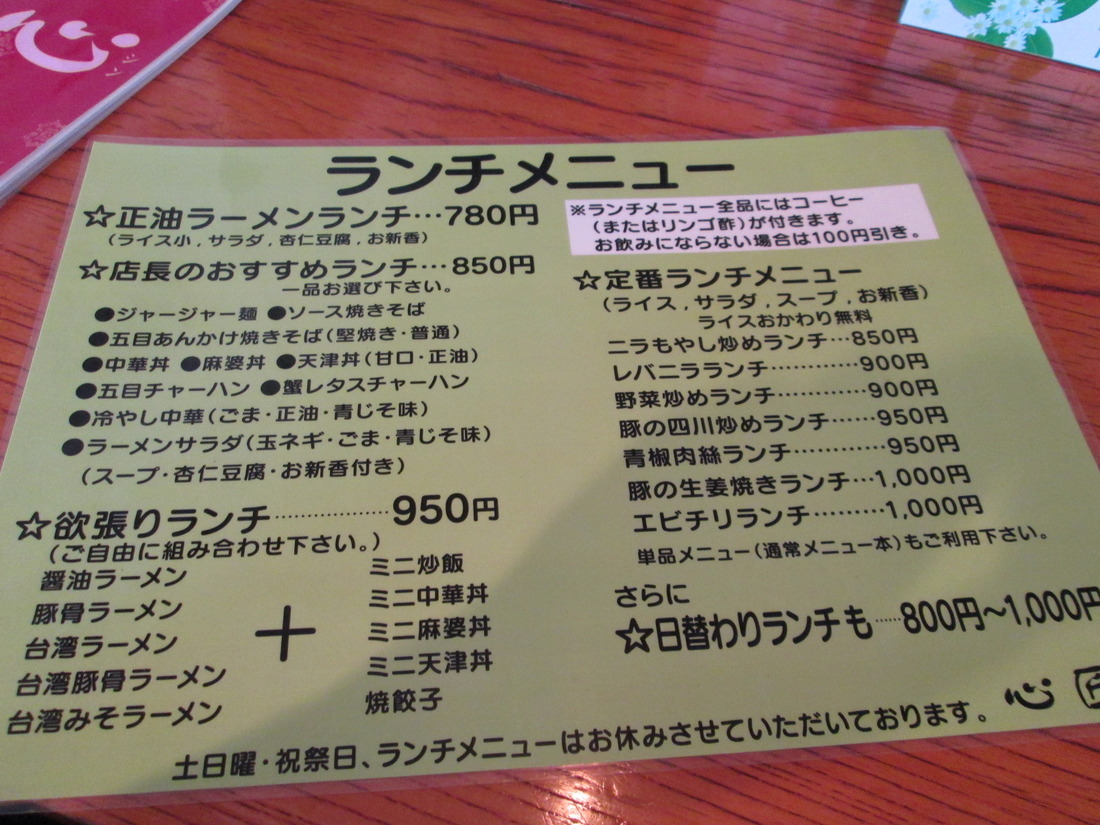 ランチメニュー
☆正油ラーメンランチ…780円
(ライス小,サラダ,杏仁豆腐,お新香)
☆店長のおすすめランチ…850円
一品お選び下さい。
●ジャージャー麺 ●ソース焼きそば
●五目あんかけ焼きそば(堅焼き・普通)
●中華丼 ●麻婆丼 ●天津丼(甘口・正油)
●五目チャーハン ●蟹レタスチャーハン
●冷やし中華(ごま・正油・青じそ味)
●ラーメンサラダ(玉ネギ・ごま・青じそ味)
(スープ・杏仁豆腐・お新香付き)
☆欲張りランチ………………950円
(ご自由に組み合わせ下さい。)
醤油ラーメン
豚骨ラーメン
台湾ラーメン
台湾豚骨ラーメン
台湾みそラーメン
+
ミニ炒飯
ミニ中華丼
ミニ麻婆丼
ミニ天津丼
焼餃子
※ランチメニュー全品にはコーヒー
(またはリンゴ酢)が付きます。
お飲みにならない場合は100円引き。
☆定番ランチメニュー
(ライス,サラダ,スープ,お新香)
ライスおかわり無料
ニラもやし炒めランチ…850円
レバニラランチ…………900円
野菜炒めランチ…………900円
豚の四川炒めランチ……950円
青椒肉絲ランチ…………950円
豚の生姜焼きランチ…1,000円
エビチリランチ………1,000円
単品メニュー(通常メニュー本)もご利用下さい。
さらに
☆日替わりランチも……800円～1,000円
土日曜・祝祭日、ランチメニューはお休みさせていただいております。
心